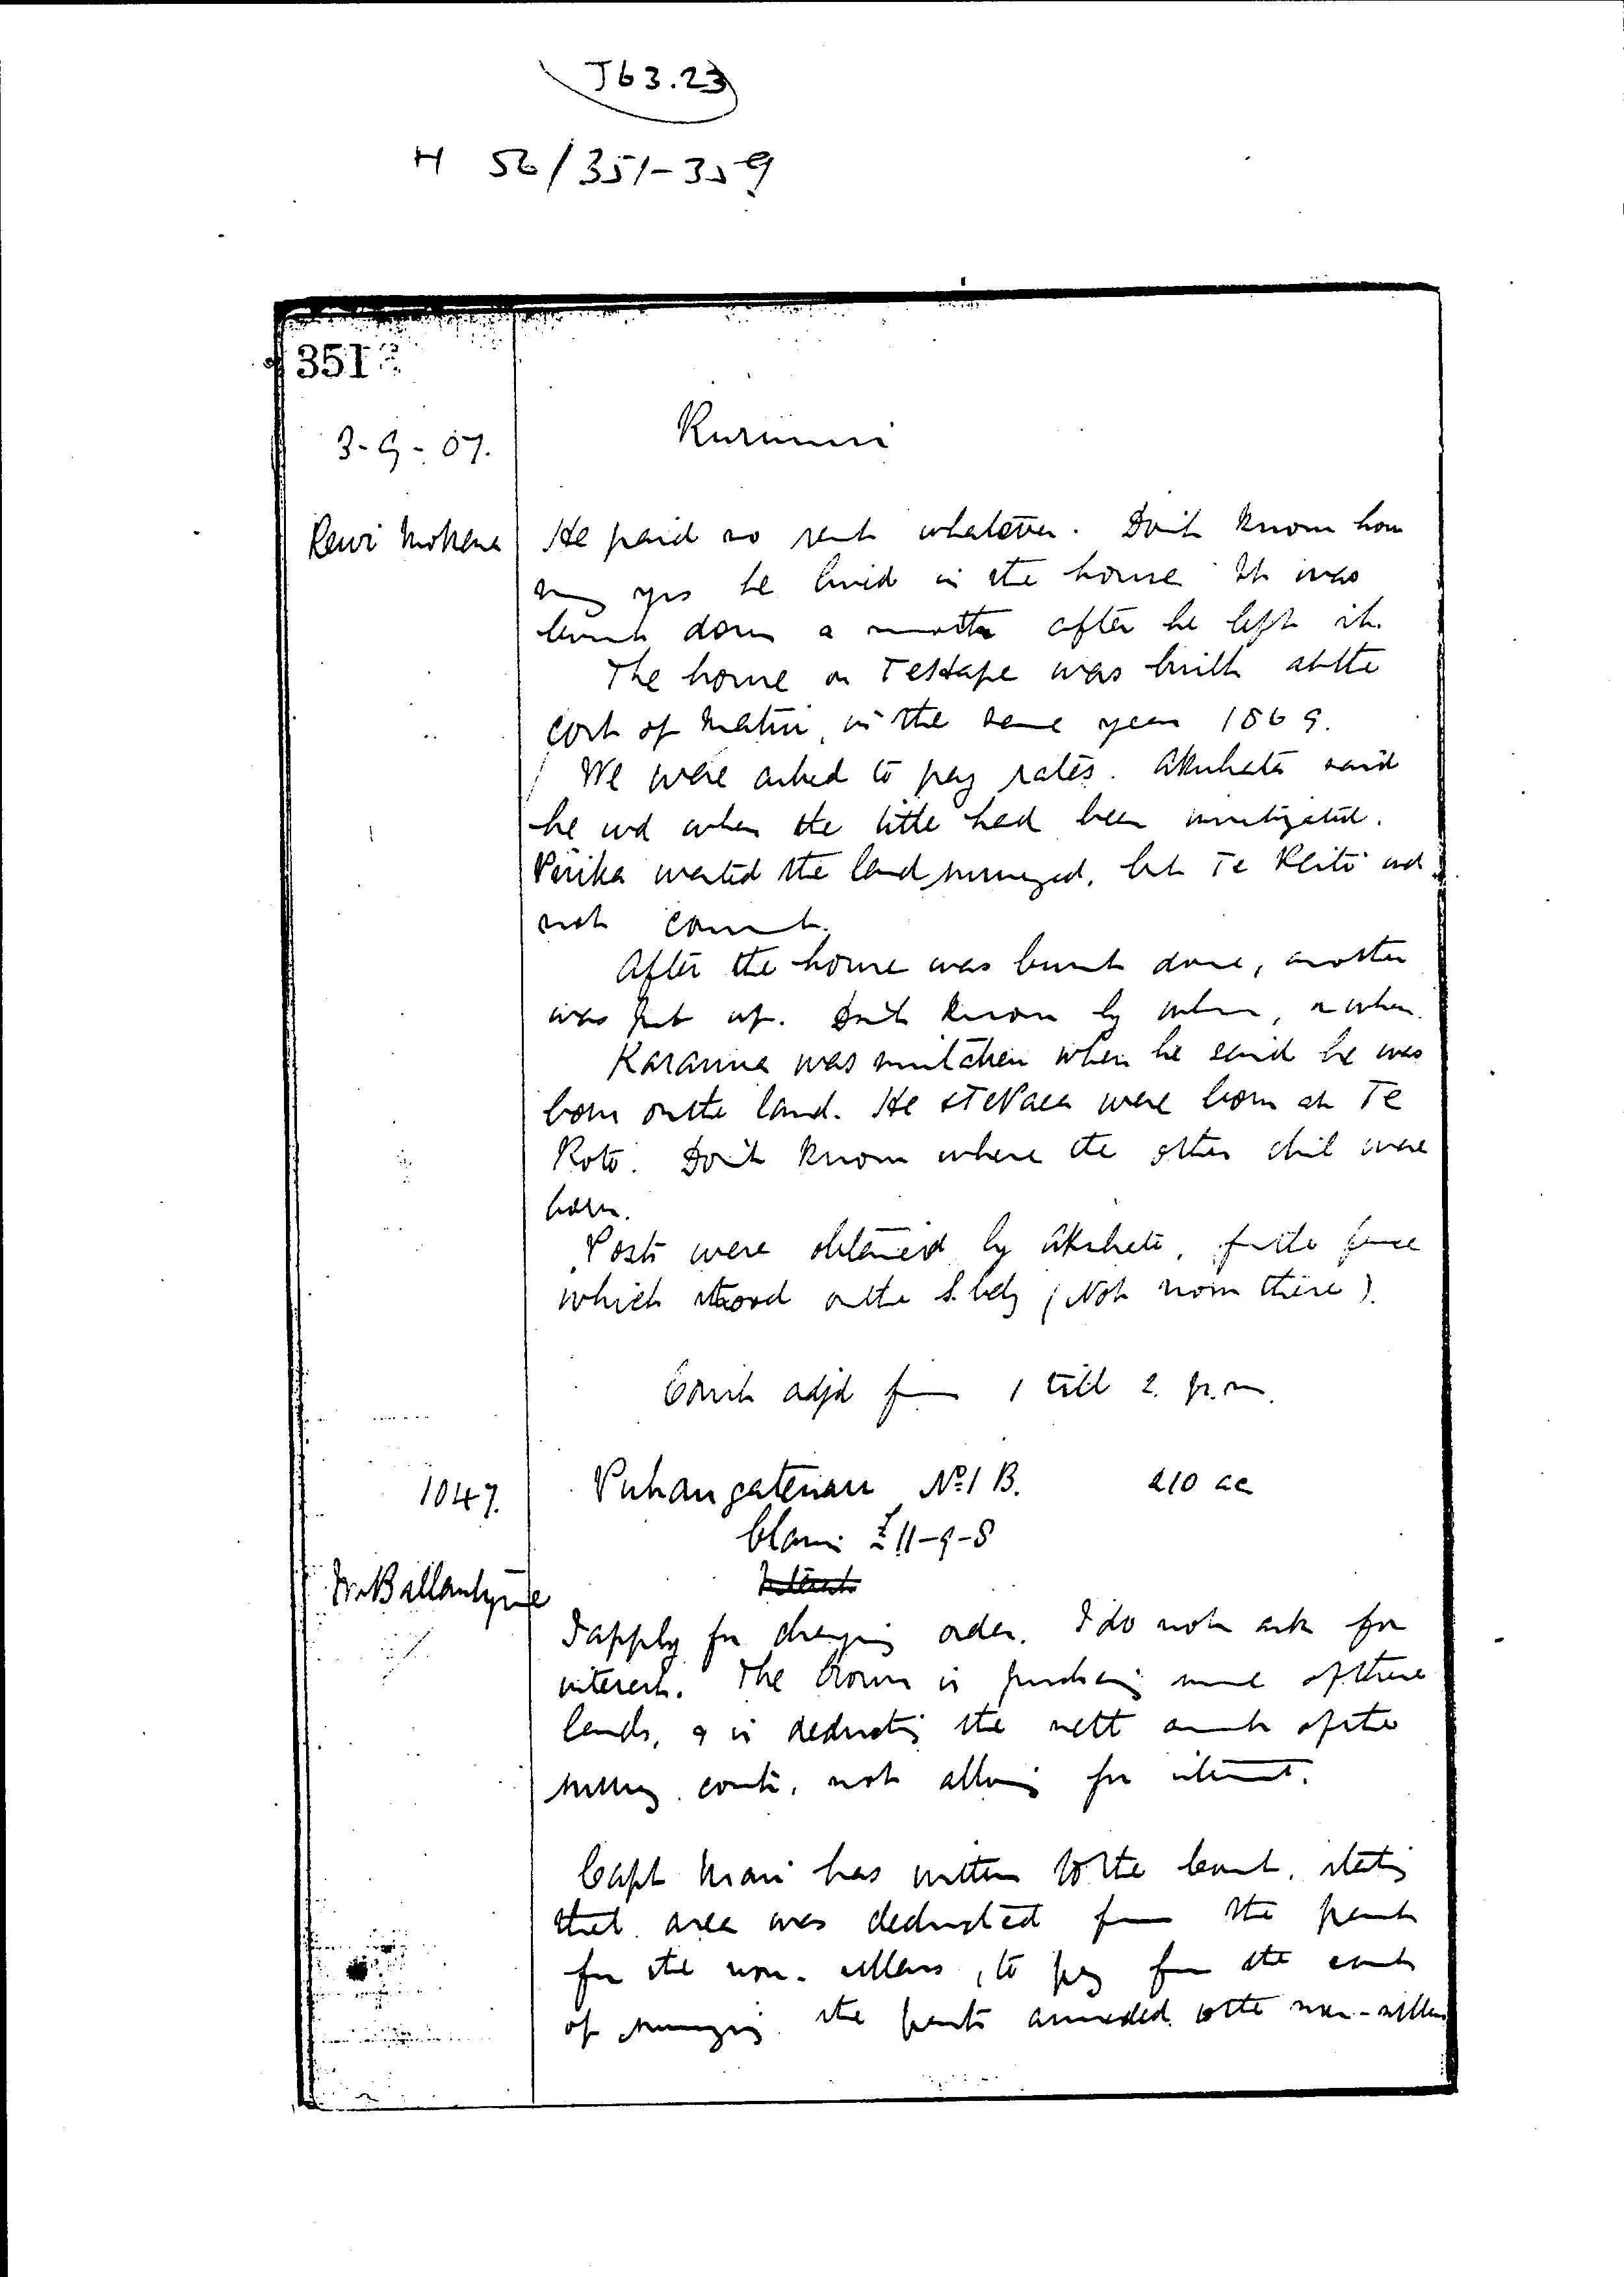 J63.23
H 56/351-359
351
3-9-07.
Kurumui
Rewi Mokena
He paid no rent whatever. Don't know how
many yrs he lived in the house It was
burnt down a month after he left it.
The house on Te Hape was built at the
cost of Matiu, in the same year 1869.
We were asked to pay rates. Akuhata said
he wd when the title had been investigated.
Pirika wanted the land surveyed, but Te Reiti wd
not consent.
After the house was burnt down, another
was put up. Don't know by whom, or when.
Karauna was mistaken when he said he was
born on the land. He & Te Paea were born at Te
Roto. Don't know where the other chil were
born.
Posts were obtained by Akuhata, for the fence
which stood on the S. bdy (Not now there).
Court adjd from 1 till 2. p.m.
1047.
No. 1 B. 210 ac
Claim £11-9-8
Mr Ballantyne
Interest
I apply for charging order. I do not ask for
interest. The Crown is purchasing some of these
lands, & is deducting the nett amnt of the
survey costs, not allowing for interest.
Capt Mair has written to the Court, stating
that area was deducted from the parts
for the non-sellers, to pay for the costs
of surveying the parts awarded to the non-sellers